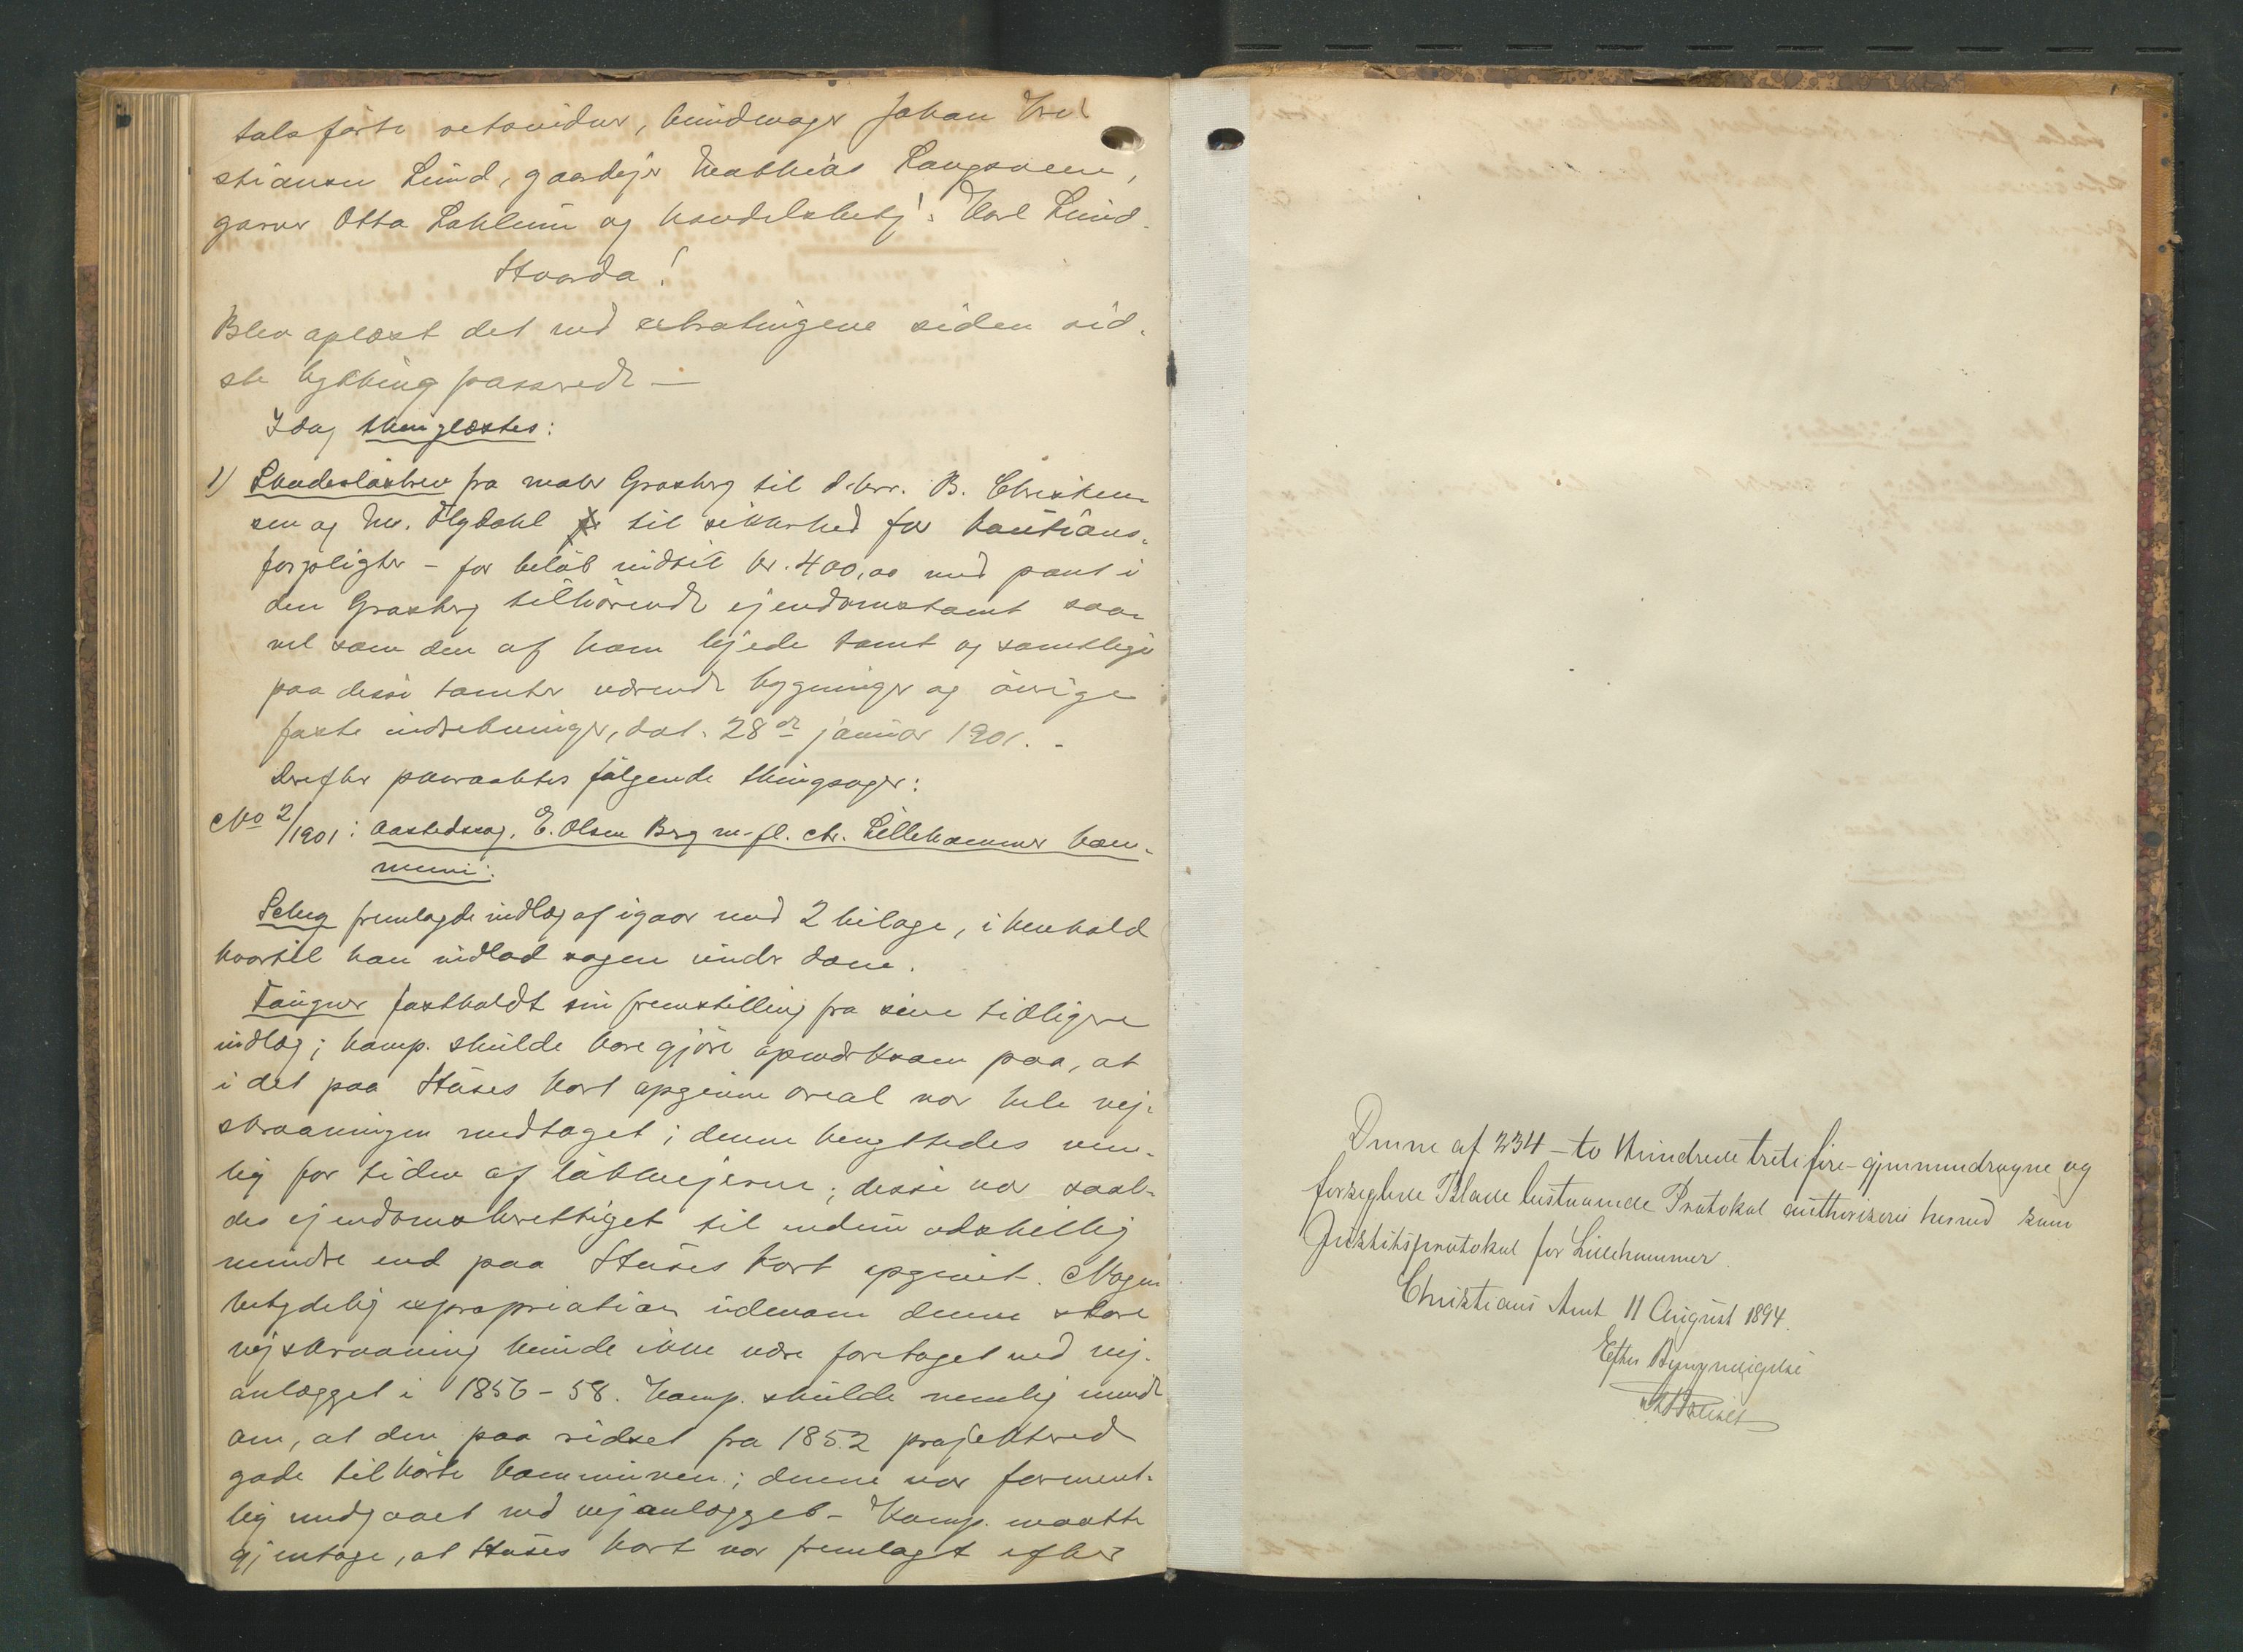 talsførte retsvidner, bundmager Johan Kri
stiansen Lund, gaardejer Mathias Langsveen,
garver Otto Lahlum og handelsbetj. Karl Lund.
Hvorda!
Blev oplæst det ved extratingene siden sid-
ste bything passerede —
Idag thinglæstes:
1) Skadesløsbrev fra maler Grasberg til d'hrr. B. Christen
sen og M. Øygdahl til sikkerhed for kautions-
forpligter – for beløb indtil kr. 400,00 med pant i
den Grasberg tilhørende ejendomstomt saa-
vel som den af ham lejede tomt og samtlige
paa disse tomter værende bygninger og øvrige
faste indretninger, dat. 28de januar 1901. -
Derefter paaraabtes følgende thingsager:
No 2/1901: Aastedssag, E. Olsen Berg m. fl. ctr. Lillehammer kom-
mune:
Scheg fremlagde indlæg af igaar med 2 bilage, i henhold
hvortil han indlod sagen under dom.
Tangner fastholdt sin fremstilling fra sine tidligere
indlæg; komp. skulde bare gjøre opmærksom paa, at
i det paa Huses kort opgivne areal var hele vej-
skraaningen medtaget; denne benyttedes nem-
lig for tiden af løkkeejerne; disse var saale-
des ejendomsberettiget til endnu adskillig
mindre end paa Huses kort opgivet. Nogen
betydelig expropriation udenom denne store
vejskraaning kunde ikke være foretaget ved vej-
anlægget i 1856-58. Komp. skulde nemlig minde
om, at den paa ridset fra 1852 projekterede
gade tilhørte kommunen; denne var forment-
lig medgaaet ved vejanlægget - Komp. maatte
gjentage, at Huses kort var fremlagt efter
Denne af 234 – to Hundrede treti fire – gjennemdragne og
forseglede Blade bestaaende Protokol authoriseres herved som
Justitsprotokol for Lillehammer.
Christians Amt 11 August 1894.
Efter Bemyndigelse